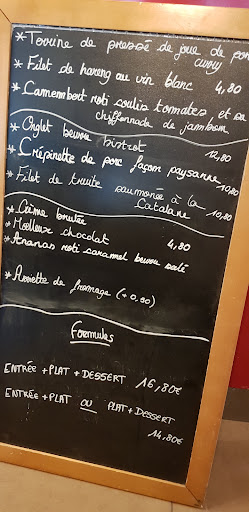 * Terrine de pressé de joue de por
curry
* Filet de hareng au vin blanc 4,80
* Camembert roti coulis tomates et sa
chiffonnade de jambon
* Onglet beurre bistrot 12,80
* Crépinette de porc façon paysanne 10,80
* Filet de truite saumonée à la
Catalane 10,80
* Crème brulée
* Moelleux chocolat 4,80
* Ananas roti caramel beurre salé
* Assiette de fromage (+0,90)
Formules
ENTRÉE + PLAT + DESSERT 16,80€
ENTRÉE + PLAT OU PLAT + DESSERT
14,80€